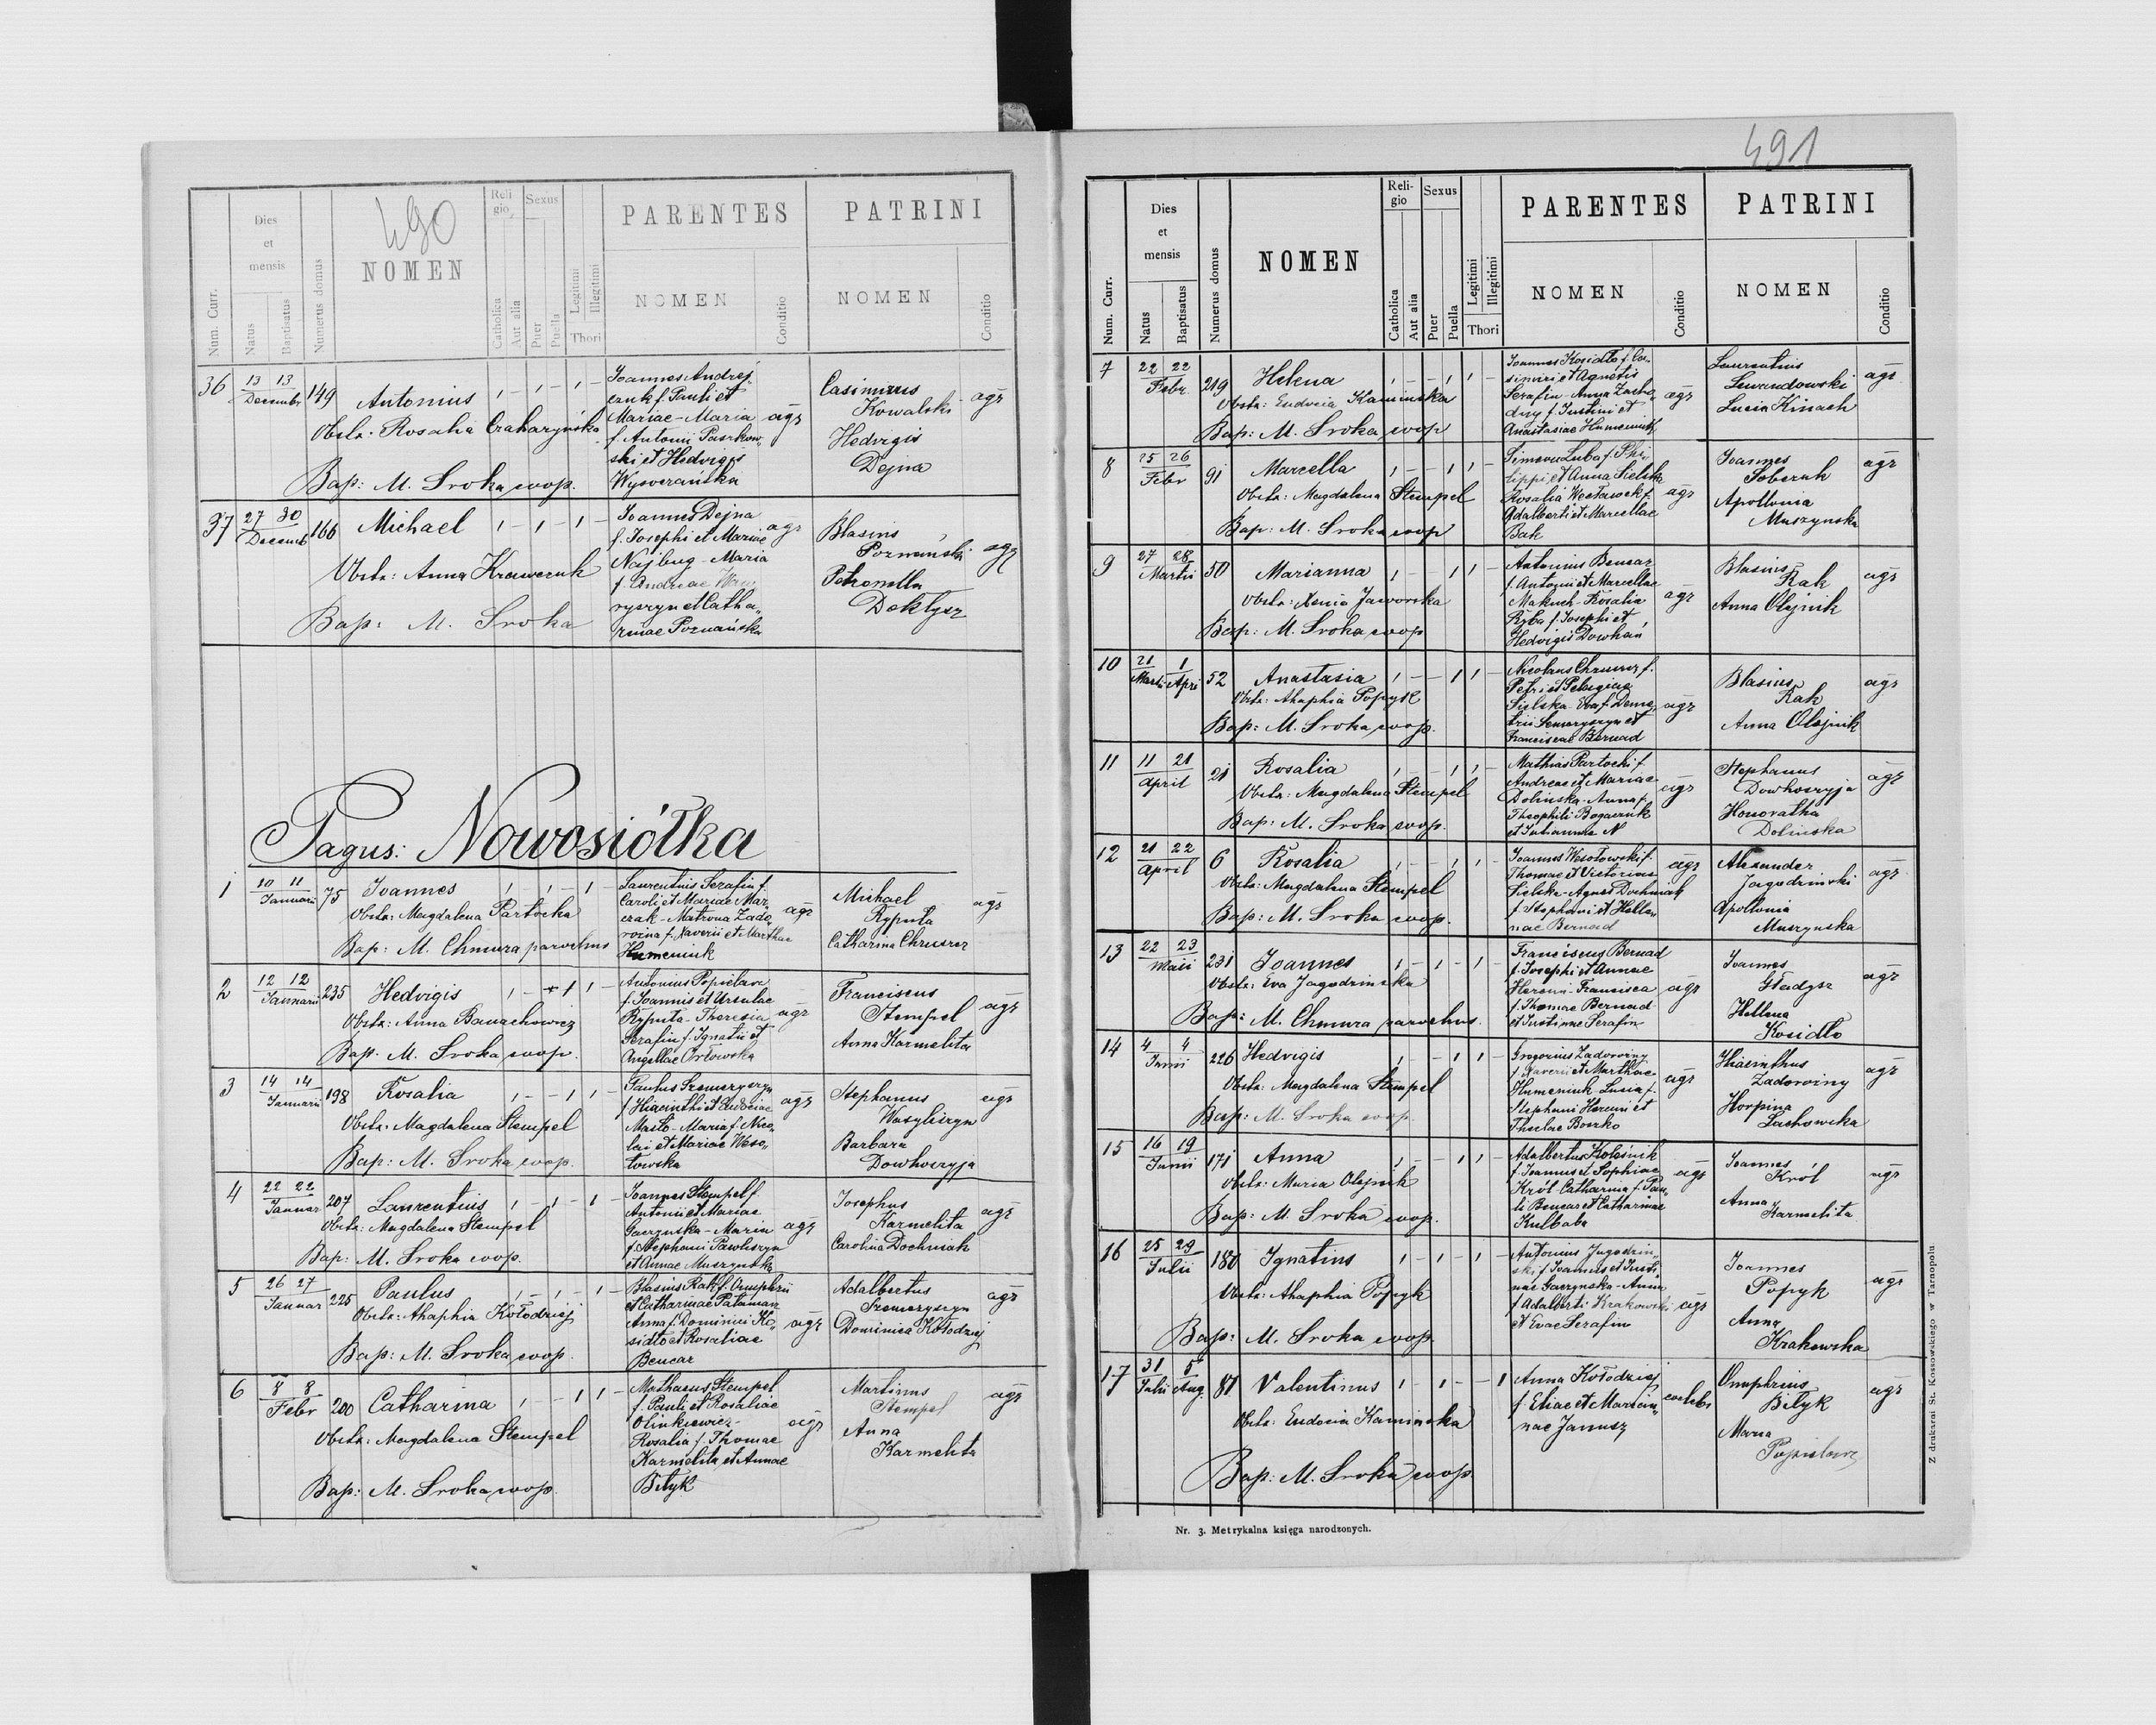 490
Num. Curr.
Dies
et
mensis
Natus
Baptisatus
Numerus domus
NOMEN
Reli
gio
Catholica
Aut alia
Sexus
Puer
Puella
Legitimi
Illegitimi
Thori
PARENTES
NOMEN
Conditio
PATRINI
NOMEN
Conditio
36 13 13 Decembr 149 Antonius 1 – 1 – 1 –
Obstr: Rosalia
Bap: M. Sroka coop.
Joannes Andrej
czuk f. Pauli et
Mariae – Maria agr
f. Antonii Paszkow„
ski et Hedvigis
Casimirus
Kowalski agr
Hedvigis
Dejna
37 27 30 Decemb 166 Michael 1 – 1 – 1 –
Obstr: Anna Krawczuk
Bap: M. Sroka
Joannes Dejna agr
f. Josephi et Mariae
Najbug – Maria
f. Andreae
ryszyn et Catha„
rinae Poznańska
Blasius
Poznański agr
Petronella
Doktysz
Pagus: Nowosiółka
1 10 11 Januarii 75 Joannes 1 – 1 – 1 –
Obstr: Magdalena Partocka
Bap: M. Chmura parochus
Laurentius Serafin f.
Caroli et Mariae Mar„
czak – Matrona Zado„ agr
rożna f. Xaverii et Marthae
Humeniuk
Michael
Ryputa agr
Catharina Chrusrcz
2 12 12 Januarii 235 Hedvigis 1 – 1 1 –
Obstr: Anna Banachowicz
Bap: M. Sroka coop.
Antonius Popielarz
f. Joannis et Ursulae
Ryputa – Theresia agr
Serafin f. Ignatii et
Angellae Orłowska
Franciscus
Stempel agr
Anna Karmelita
3 14 14 Januarii 198 Rosalia 1 – – 1 1 –
Obstr: Magdalena Stempel
Bap: M. Sroka coop.
Paulus Szemeryszyn
f. Hiacinthi et Eudociae agr
Masło – Maria f. Nico„
lai et Mariae Weso„
łowska
Stephanus agr
Wasyliszyn
Barbara
Dowhoszyja
4 22 22 Januar 207 Laurentius 1 – 1 – 1 –
Obstr: Magdalena Stempel
Bap: M. Sroka coop.
Joannes Stempel f.
Antonii et Mariae
Gaczynska – Maria agr
f. Stephani Pawliszyn
et Annae Muszynska
Josephus
Karmelita agr
Carolina Dochniak
5 26 27 Januar 225 Paulus 1 – 1 – 1 –
Obstr: Ahaphia Kołodziej
Bap: M. Sroka coop.
Blasius Rak f. Onuphrii
et Catharinae Pałamar
Anna f. Dominici Ko„ agr
sidło et Rosaliae
Bencar
Adalbertus
Szemeryszyn agr
Dominica Kołodziej
6 8 8 Febr 200 Catharina 1 – – 1 1 –
Obstr: Magdalena Stempel
Bap: M. Sroka coop.
Mathaeus Stempel
f. Pauli et Rosaliae
Olinkiewicz – agr
Rosalia f. Thomae
Karmelita et Annae
Biłyk
Martinus
Stempel agr
Anna
Karmelita
491
Num. Curr.
Dies
et
mensis
Natus
Baptisatus
Numerus domus
NOMEN
Reli-
gio
Catholica
Aut alia
Sexus
Puer
Puella
Legitimi
Illegitimi
Thori
PARENTES
NOMEN
Conditio
PATRINI
NOMEN
Conditio
7 22 22 Febr. 219 Helena 1 – – 1 1 –
Obstr: Eudocia Kaminska
Bap: M. Sroka coop
Joannes Kosidło f. Ca„
simiri et Agnetis
Serafin – Anna Zacho„ agr
dny f. Justini et
Anastasiae Humeniuk
Laurentius
Lewandowski agr
Lucia Kinach
8 25 26 Febr 91 Marcella 1 – – 1 1 –
Obstr: Magdalena Stempel
Bap: M. Sroka coop
Simeon Luba f. Phi„
lippi et Anna Sielska
Rosalia Wocławek f. agr
Adalberti et Marcellae
Bak
Joannes
Soberuk agr
Apollonia
Muszynska
9 27 28 Martii 50 Marianna 1 – – 1 1 –
Obstr: Xenia Jaworska
Bap: M. Sroka coop
Antonius Bencar
f. Antonii et Marcellae
Makuch – Rosalia agr
Ryba f. Josephi et
Hedvigis Dowhań
Blasius
Rak agr
Anna Olejnik
10 21 Martii 1 Apri 52 Anastasia 1 – – 1 1 –
Obstr: Ahaphia Popyk
Bap: M. Sroka coop.
Nicolaus Chrusrcz f.
Petri et Pelagiae
Sielska – Eva f. Deme„ agr
trii Semeryszyn et
Franciscae Bernad
Blasius
Rak agr
Anna Olejnik
11 11 21 April 21 Rosalia 1 – – 1 1 –
Obstr: Magdalena Stempel
Bap: M. Sroka coop.
Mathias Partocki f.
Andreae et Mariae
Dolinska – Anna f. agr
Theophili Bogaczuk
et Julianna N
Stephanus
Dowhoszyja agr
Honoratha
Dolinska
12 21 22 April 6 Rosalia 1 – – 1 1 –
Obstr: Magdalena Stempel
Bap: M. Sroka coop.
Joannes Wesołowski f. agr
Thomae et Victoriae
Sielska – Agnes Dochniak
f. Stephani et Helle„
nae Bernad
Alexander
Jagodzinski agr
Apollonia
Muszynska
13 22 23 Maii 231 Joannes 1 – 1 – 1 –
Obstr: Eva Jagodzinska
Bap: M. Chmura parochus.
Franciscus Bernad
f. Josephi et Annae
Hercun – Francisca agr
f. Thomae Bernad
et Justinae Serafin
Joannes
Gładysz agr
Hellena
Kosidło
14 4 4 Junii 226 Hedvigis 1 – – 1 1 –
Obstr: Magdalena Stempel
Bap: M. Sroka coop.
Gregorius Zadorożny
f. Xaverii et Marthae
Humeniuk Lucia f. agr
Stephani Hercun et
Theclae Boszko
Hiacinthus
Zadorożny agr
Horpina
Lachowska
15 16 19 Junii 171 Anna 1 – – 1 1 –
Obstr: Maria Olejnik
Bap: M. Sroka coop.
Adalbertus Kolośnik
f. Joannis et Sophiae agr
Król – Catharina f. Pau„
li Bencar et Catharinae
Kulbaba
Joannes
Król agr
Anna
Karmelita
16 25 29 Julii 180 Ignatius 1 – 1 – 1 –
Obstr: Ahaphia Popyk
Bap: M. Sroka coop.
Antonius Jagodzin„
ski f. Joannis et Justi„
nae Gaczynska – Anna
f. Adalberti Krakowski agr
et Evae Serafin
Joannes
Popyk agr
Anna
Krakowska
17 31 Julii 5 Aug. 81 Valentinus 1 – 1 – – 1
Obstr: Eudocia Kaminska
Bap: M. Sroka coop.
Anna Kołodziej
f. Eliae et Marian„
nae Janusz
Onuphrius
Biłyk agr
Maria
Popielarz
Nr. 3. Metrykalna księga narodzonych.
Z drukarni St. Kossowskiego w Tarnopolu